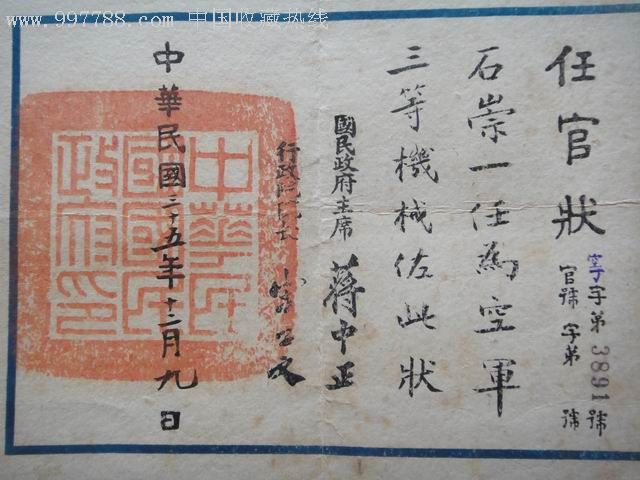 www.997788.com 中国收藏热线
任官狀
空字第3891號
官號 字第 號
石崇一任為空軍
三等機械佐此狀
國民政府主席 蔣中正
行政院院長 宋子文
中華民國三十五年十二月九日
中華民國國民政府印